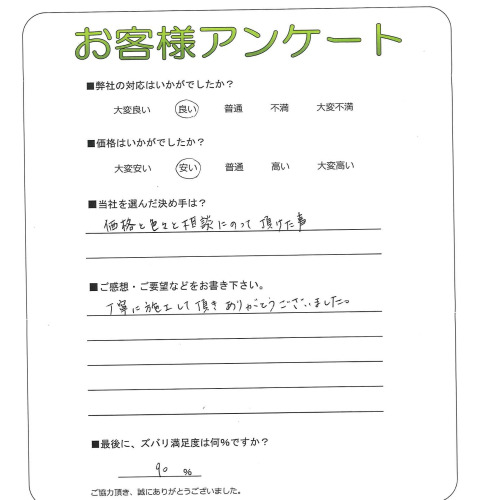 お客様アンケート
■弊社の対応はいかがでしたか？
大変良い 良い 普通 不満 大変不満
■価格はいかがでしたか？
大変安い 安い 普通 高い 大変高い
■当社を選んだ決め手は？
価格と色々と相談にのって頂けた事
■ご感想・ご要望などをお書き下さい。
丁寧に施工して頂きありがとうございました。
■最後に、ズバリ満足度は何％ですか？
90 %
ご協力頂き、誠にありがとうございました。